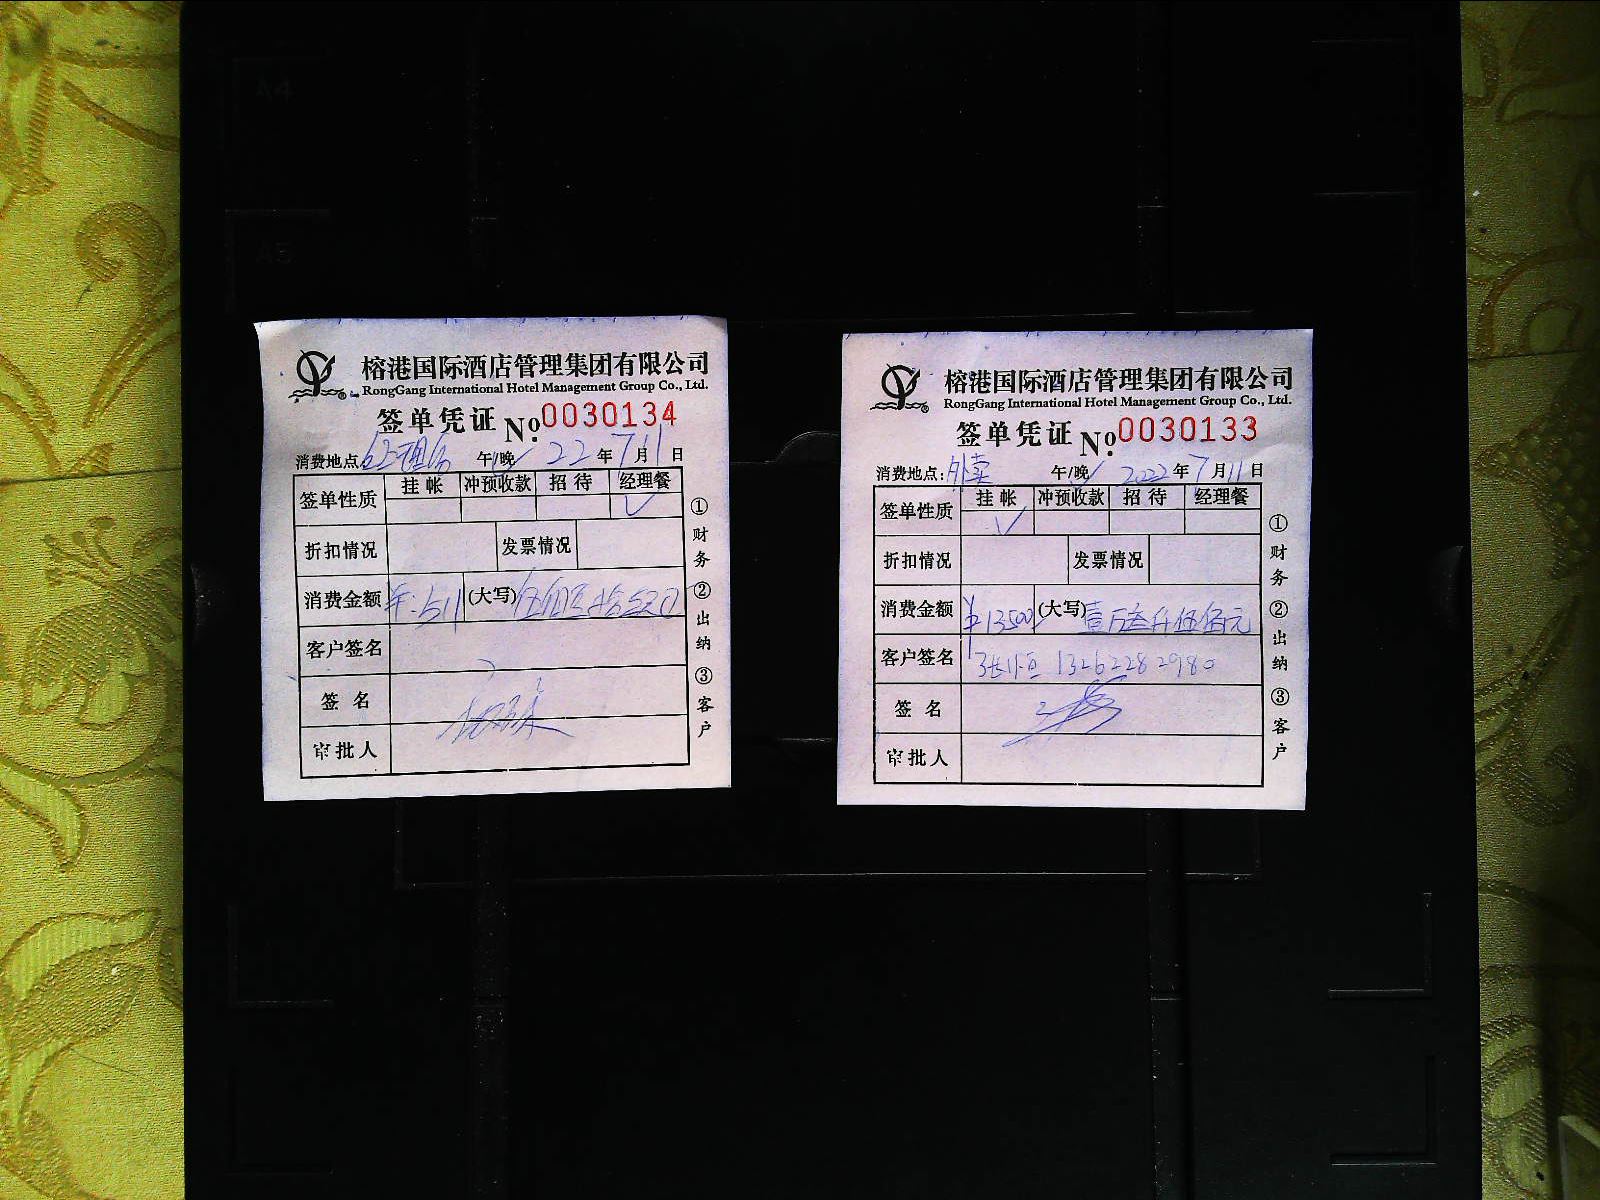 榕港国际酒店管理集团有限公司
RongGang International Hotel Management Group Co., Ltd.
签单凭证 No. 0030134
消费地点: 午/晚 22 年 7 月 11 日
签单性质 挂帐 冲预收款 招待 经理餐
✓
折扣情况 发票情况
消费金额 (大写)
客户签名
签名
审批人
① 财务 ② 出纳 ③ 客户
榕港国际酒店管理集团有限公司
RongGang International Hotel Management Group Co., Ltd.
签单凭证 No. 0030133
消费地点: 外卖 午/晚 2022 年 7 月 11 日
签单性质 挂帐 冲预收款 招待 经理餐
✓
折扣情况 发票情况
消费金额 ¥13500 (大写) 壹万叁仟伍佰元
客户签名 13262282980
签名
审批人
① 财务 ② 出纳 ③ 客户
A4
A5